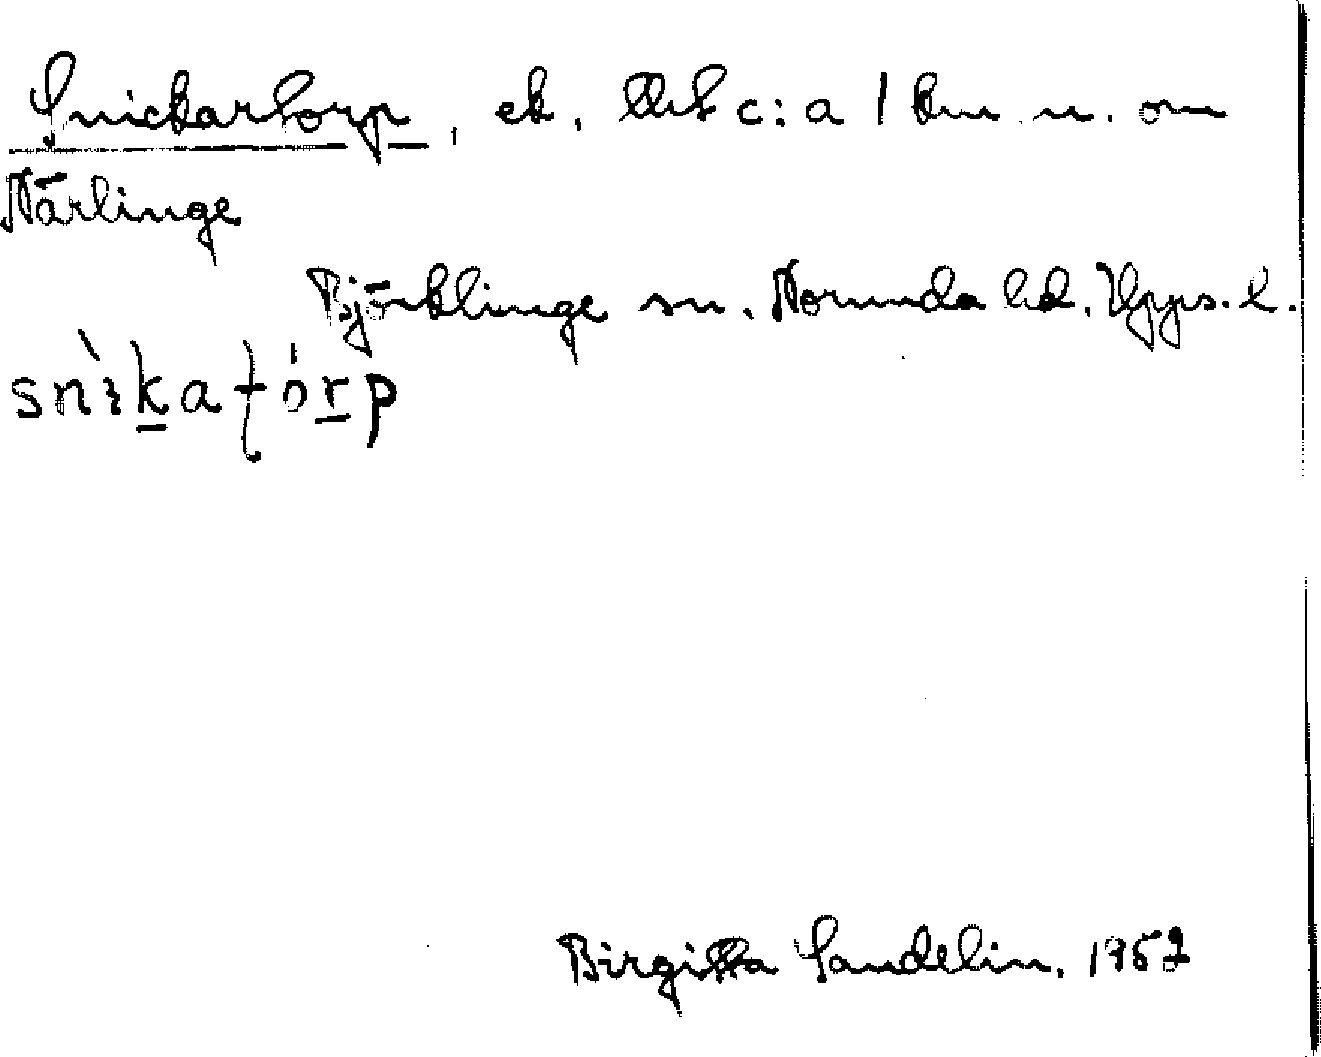 Snickartorp, ek. c:a 1 km n. om
Närlinge
Björklinge sn. Norunda hd. Upps. l.
Birgitta Sandelin. 1952